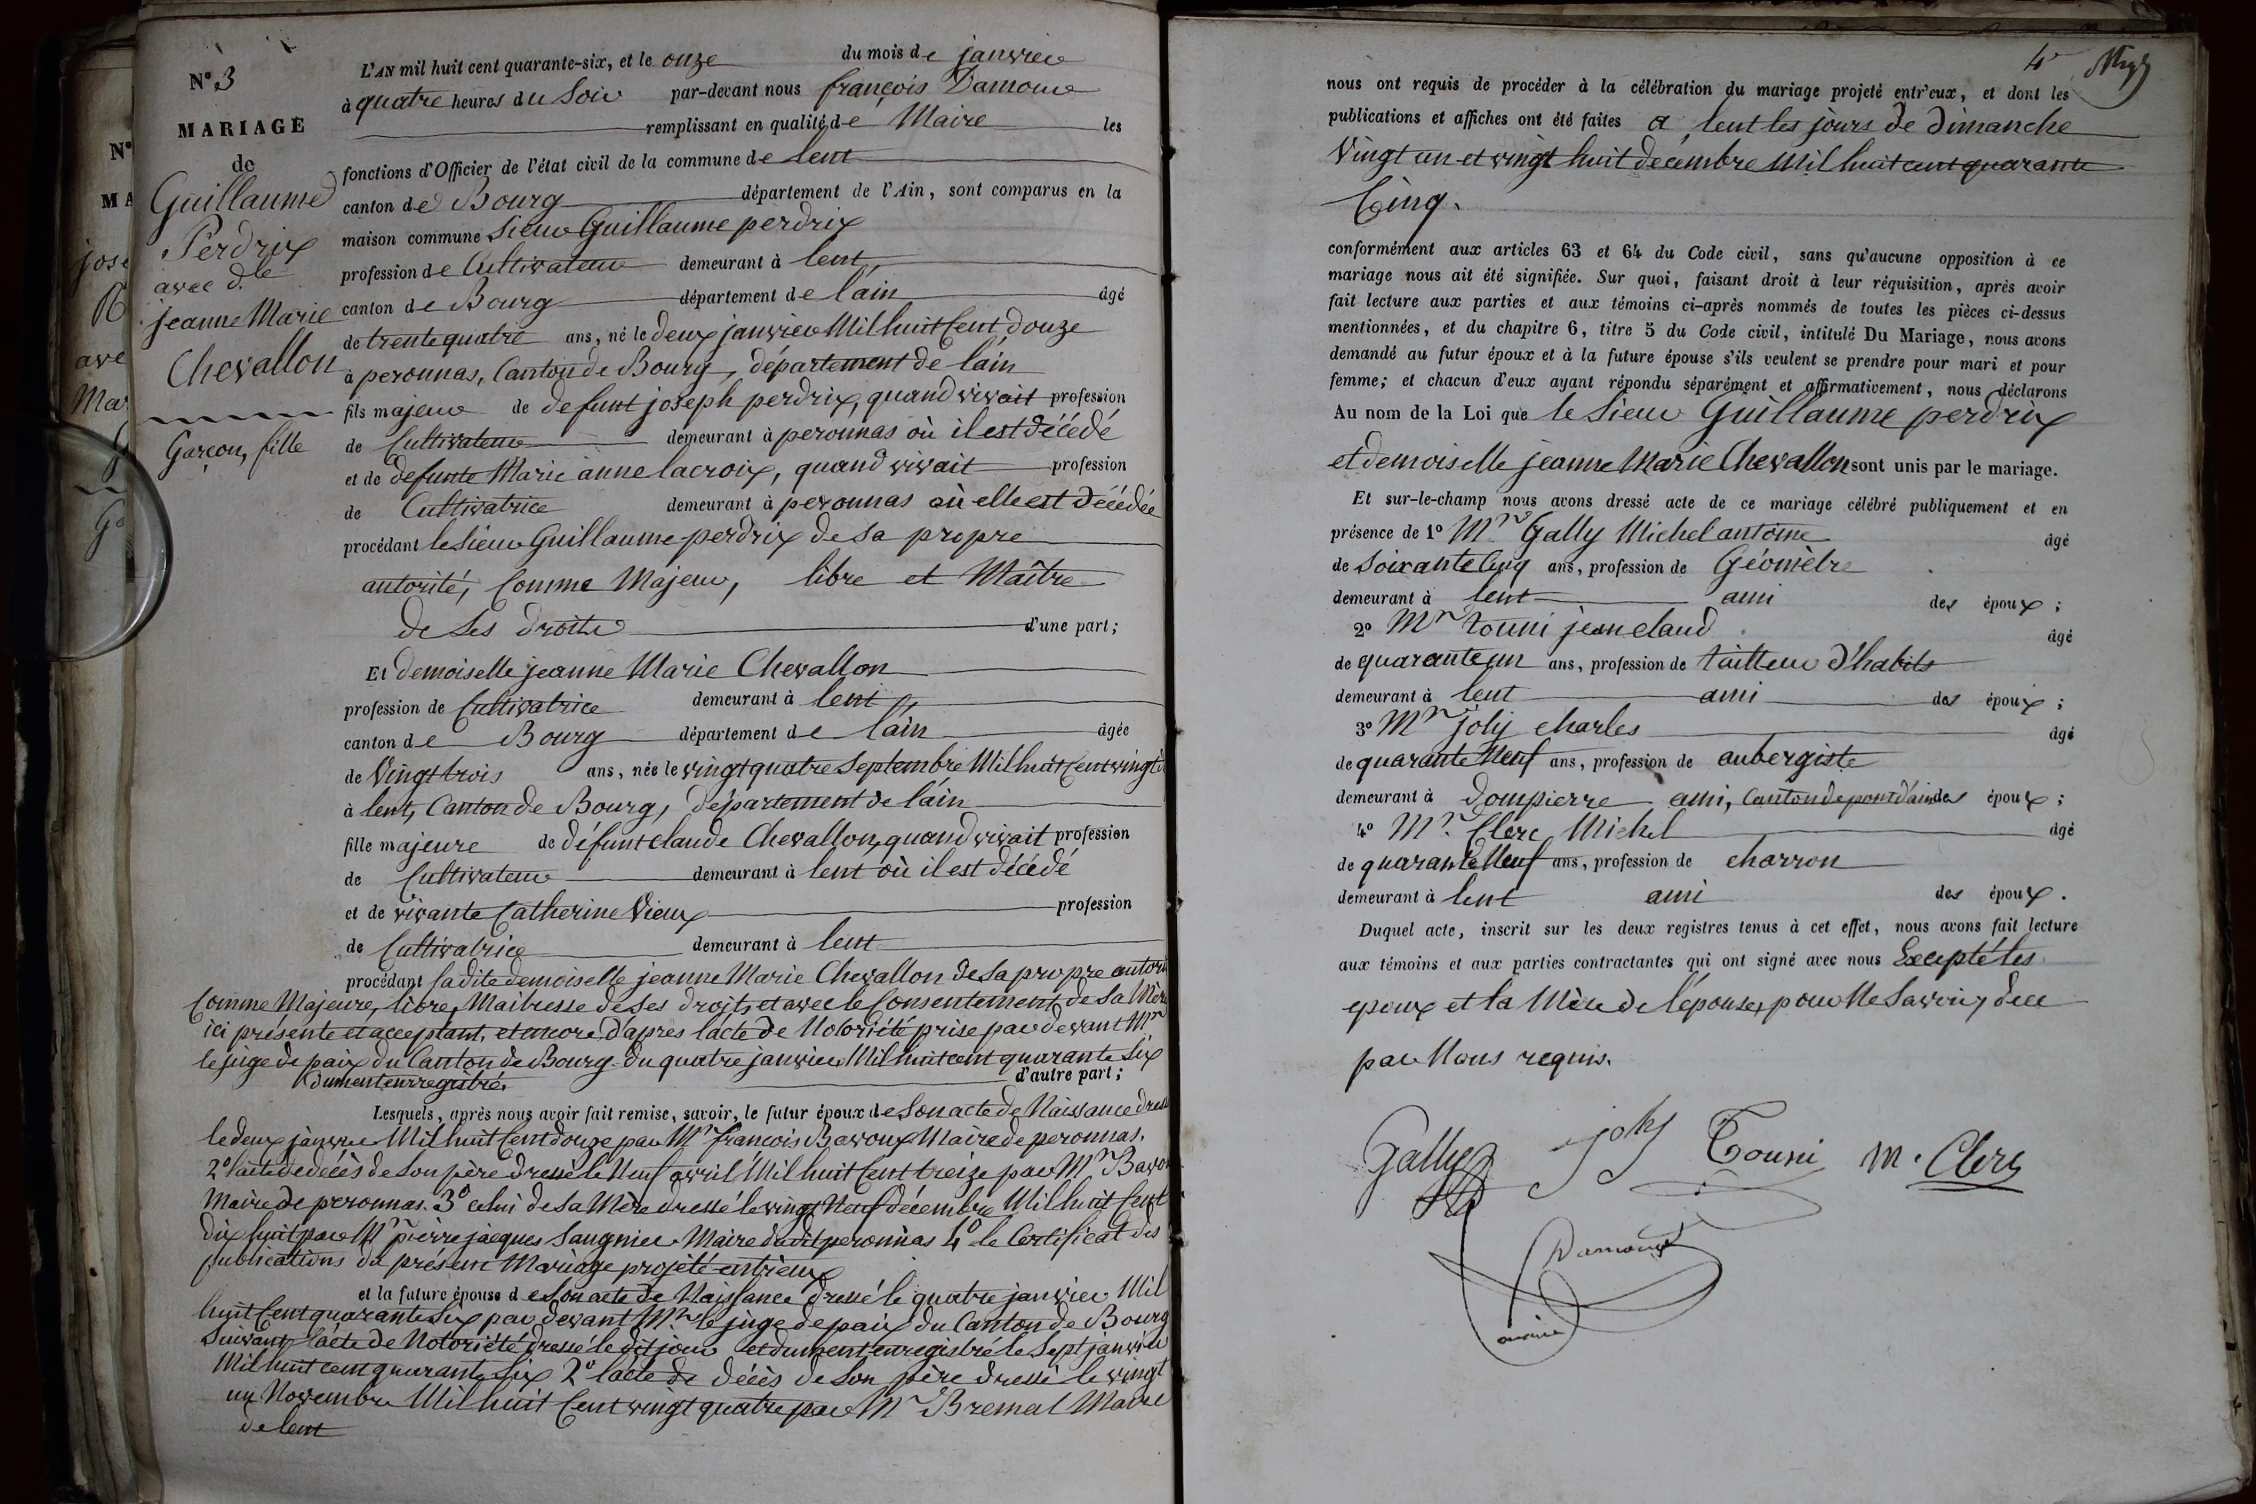 N° 3
MARIAGE
de
Guillaume
Perdrix
avec dlle
jeanne Marie
Chevallon
Garçon, fille
L'AN mil huit cent quarante-six, et le onze du mois de janvier
à quatre heures du Soir par-devant nous françois Damour
remplissant en qualité de Maire les
fonctions d'Officier de l'état civil de la commune de lent
canton de Bourg département de l'Ain, sont comparus en la
maison commune Sieur Guillaume perdrix
profession de Cultivateur demeurant à lent
canton de Bourg département de l'ain âgé
de trente quatre ans, né le deux janvier Mil huit Cent douze
à peronnas, Canton de Bourg, département de l'ain
fils majeur de defunt joseph perdrix, quand vivait profession
de Cultivateur demeurant à peronnas où il est décédé
et de defunte Marie anne lacroix, quand vivait profession
de Cultivatrice demeurant à peronnas où elle est décédée
procédant le Sieur Guillaume perdrix de sa propre
autorité, Comme Majeur, libre et Maître
de Ses droits d'une part;
Et demoiselle jeanne Marie Chevallon
profession de Cultivatrice demeurant à lent
canton de Bourg département de l'ain âgée
de Vingt trois ans, née le vingt quatre Septembre Mil huit Cent vingt
à lent, Canton de Bourg, département de l'ain
fille majeure de défunt claude Chevallon, quand vivait profession
de Cultivateur demeurant à lent où il est décédé
et de vivante Catherine Vieux profession
de Cultivatrice demeurant à lent
procédant ladite demoiselle jeanne Marie Chevallon de Sa propre autori
Comme Majeure, libre, Maitresse de Ses droits, et avec le Consentement de Sa Mère
ici présente et acceptant, et encore d'après l'acte de Notoriété prise par devant Mr
le juge de paix du Canton de Bourg du quatre janvier Mil huit cent quarante Six
dument enregistré. d'autre part;
Lesquels, après nous avoir fait remise, savoir, le futur époux de Son acte de Naissance dressé
le deux janvier Mil huit Cent douze par Mr françois Bavoux Maire de peronnas.
2° l'acte de décès de Son père dressé le Neuf avril Mil huit Cent treize par Mr Bavou
Maire de peronnas. 3° celui de Sa Mère dressé le vingt Neuf décembre Mil huit Cent
dix huit par Mr pierre jacques Saugnier Maire dudit peronnas 4° le Certificat des
publications du présent Mariage projeté entr'eux
et la future épouse de Son acte de Naissance dressé le quatre janvier Mil
huit Cent quarante Six par devant Mr le juge de paix du Canton de Bourg
Suivant l'acte de Notoriété dressé le dit jour et dument enregistré le Sept janvier
Mil huit cent quarante Six 2° l'acte de décès de Son père dressé le vingt
un Novembre Mil huit Cent vingt quatre par Mr Bremal Maire
de lent
4
nous ont requis de procéder à la célébration du mariage projeté entr'eux, et dont les
publications et affiches ont été faites a lent les jours de dimanche
Vingt un et vingt huit décembre Mil huit cent quarante
Cinq.
conformément aux articles 63 et 64 du Code civil, sans qu'aucune opposition à ce
mariage nous ait été signifiée. Sur quoi, faisant droit à leur réquisition, après avoir
fait lecture aux parties et aux témoins ci-après nommés de toutes les pièces ci-dessus
mentionnées, et du chapitre 6, titre 5 du Code civil, intitulé Du Mariage, nous avons
demandé au futur époux et à la future épouse s'ils veulent se prendre pour mari et pour
femme; et chacun d'eux ayant répondu séparément et affirmativement, nous déclarons
Au nom de la Loi que le Sieur Guillaume perdrix
et demoiselle jeanne Marie Chevallon sont unis par le mariage.
Et sur-le-champ nous avons dressé acte de ce mariage célébré publiquement et en
présence de 1° Mr Gally Michel antoine âgé
de Soixante Cinq ans, profession de Géomètre
demeurant à lent ami des époux;
2° Mr touni jean claud âgé
de quarante un ans, profession de tailleur d'habits
demeurant à lent ami des époux;
3° Mr joly charles âgé
de quarante Neuf ans, profession de aubergiste
demeurant à dompierre ami, Canton de pont d'ain des époux;
4° Mr Clerc Michel âgé
de quarante Neuf ans, profession de charron
demeurant à lent ami des époux.
Duquel acte, inscrit sur les deux registres tenus à cet effet, nous avons fait lecture
aux témoins et aux parties contractantes qui ont signé avec nous Excepté les
epoux et la Mère de l'épouse, pour Ne Savoir, de ce
par Nous requis.
Gally joly Touni M. Clerc
Damour
maire